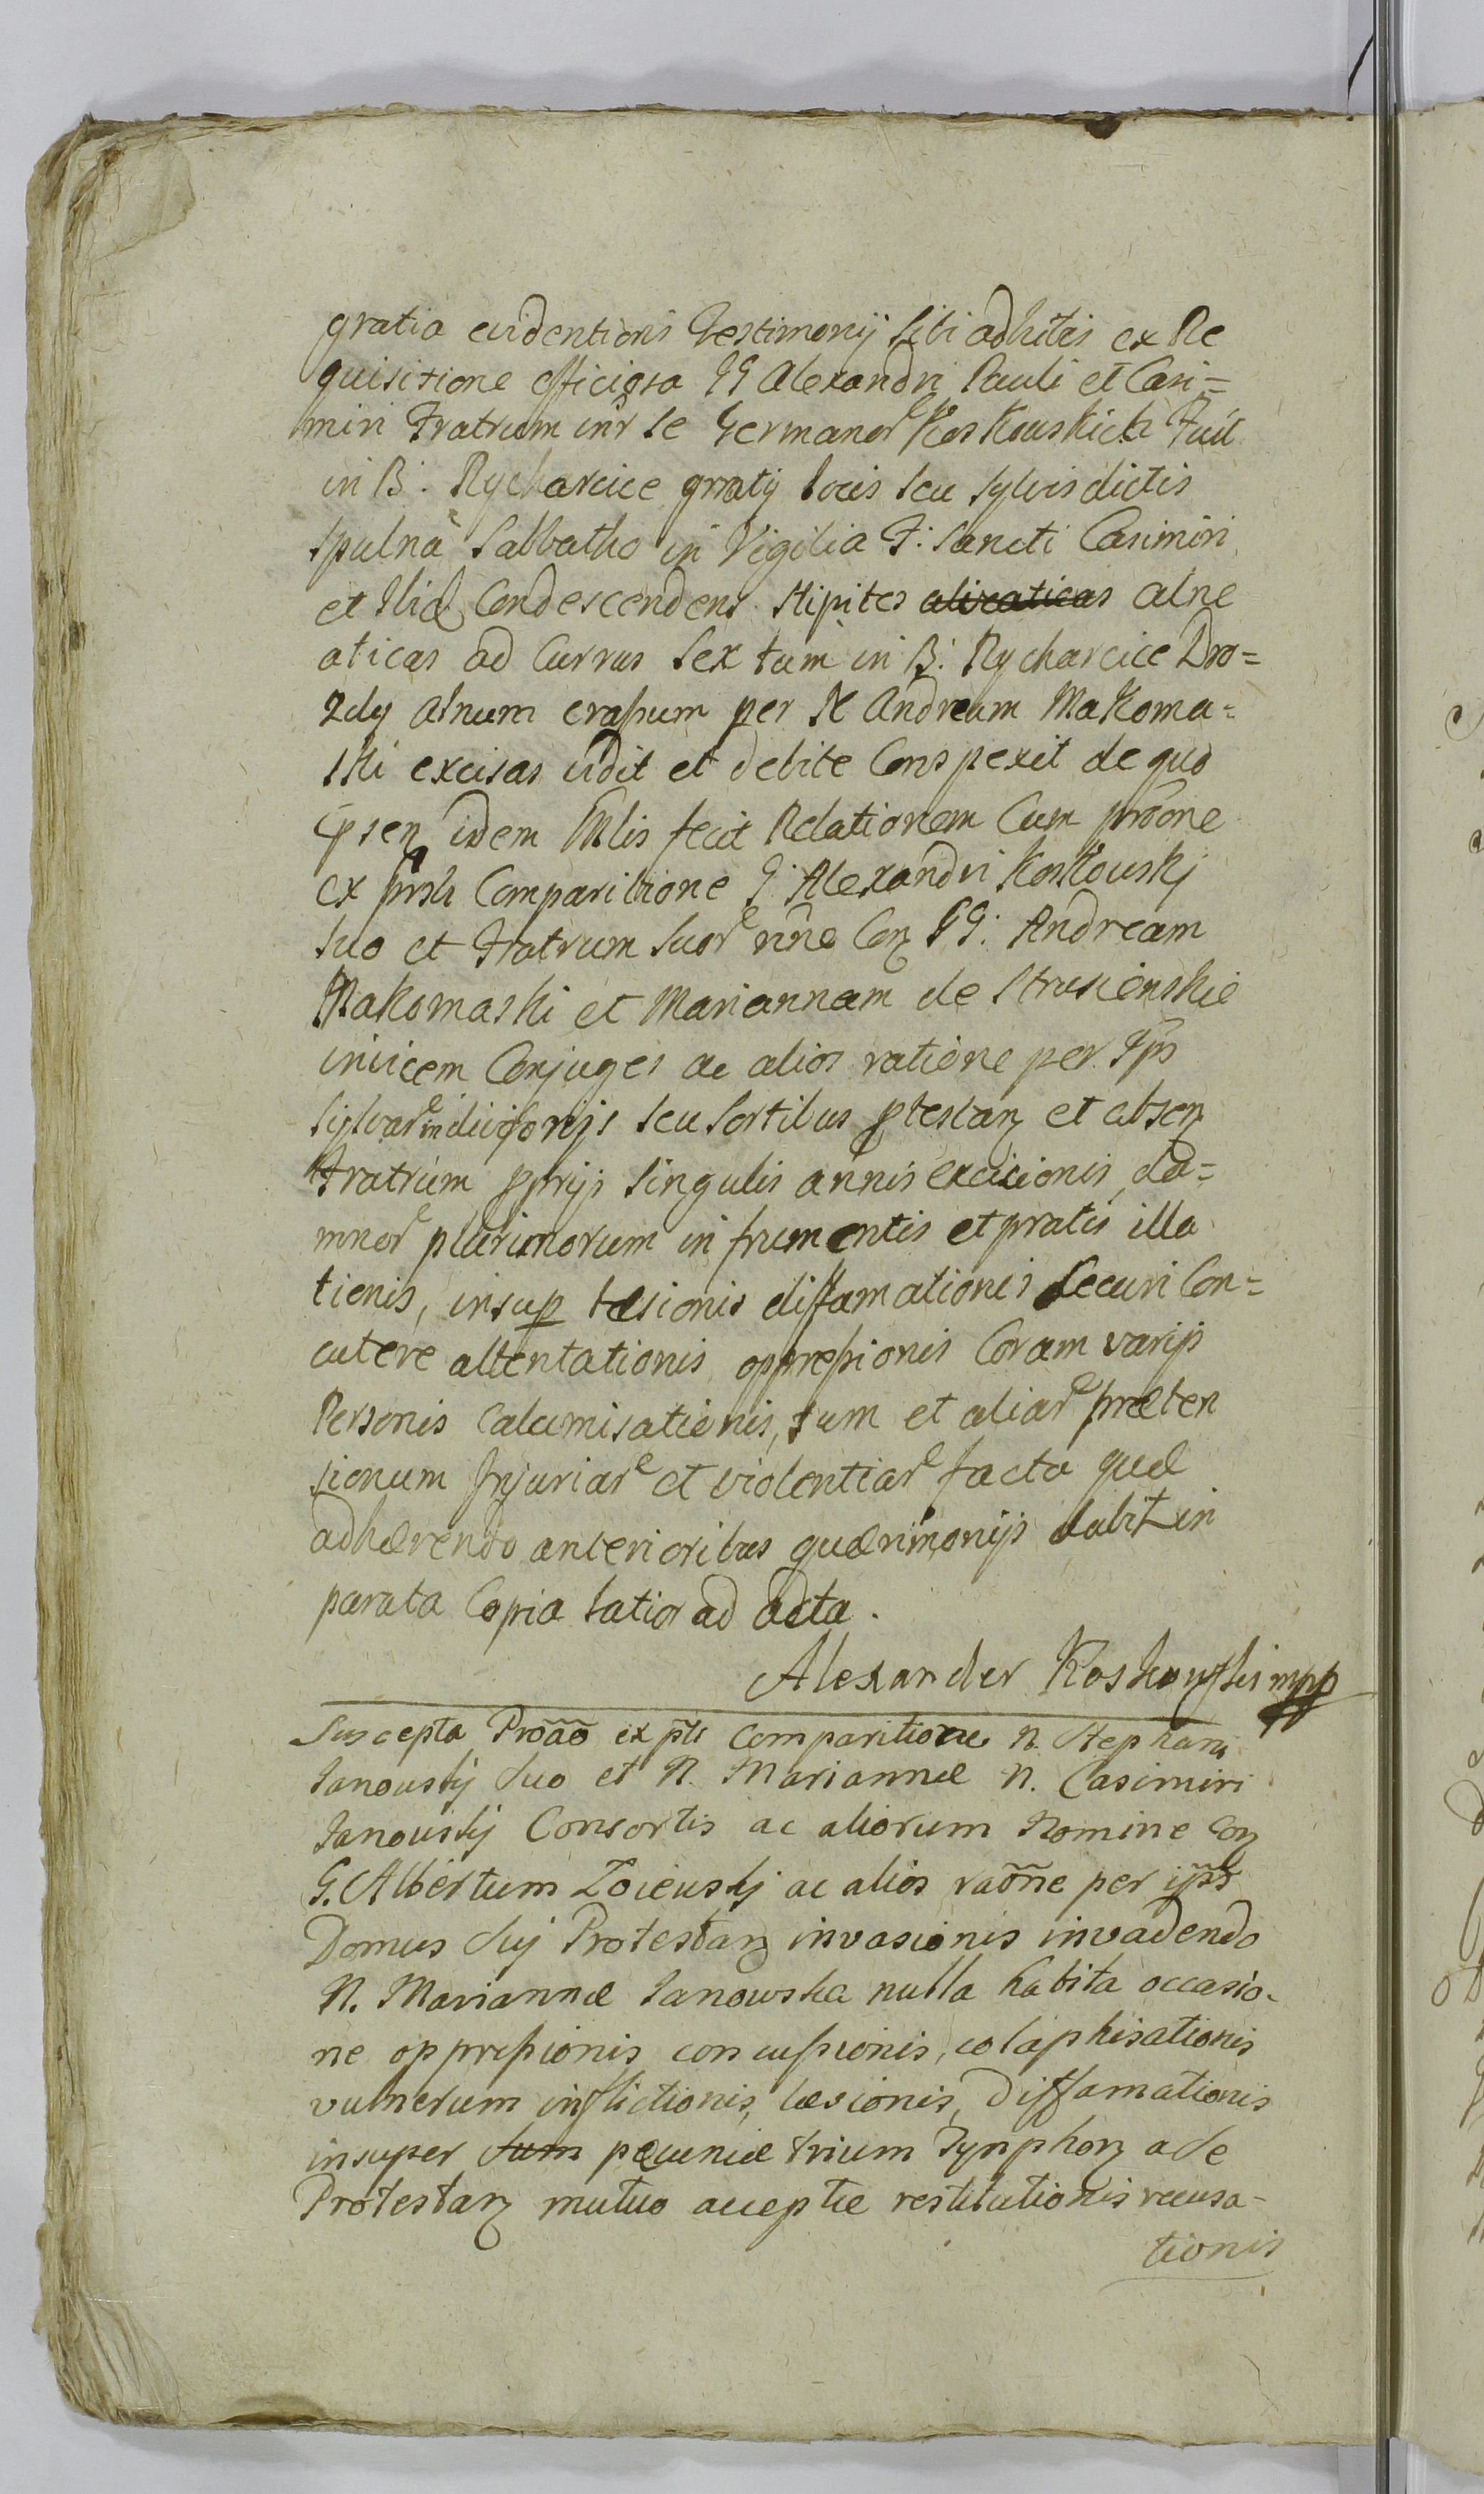 gratia evidentioris Testimonij sibi adhitis ex Re
quisitione officiosa GG Alexandri Pauli et Casi=
miri Fratrum intr se Germanor Koskouskich Fuit
in B. Rycharcice grraty locis seu sylvis dictis
spulna Sabbatho in Vigilia F: Sancti Casimiri
et Ibid Condescendens Stipites alicaticas alne
aticas ad Currus Sex tam in B: Rycharcice Dro=
zdy alnum crassum per N Andream Makoma=
ski excisas vidit et debite Conspexit de quo
idem Mlis fecit Relationem Cum prone
ex prsti Comparitione G: Alexandri Koskouskj
suo et Fratrum suor nne Con GG: Andream
Makomaski et Mariannam de Strusienskie
invicem Conjuges ac alios ratione per Ips
sylvar in divisorijs seu sortibus ptestan et absen
Fratrum pprijs singulis annis excisionis, da=
mnor plurimorum in frumentis et pratis illa
tionis, insup læsionis diffamationis securi Con=
cutere attentationis oppressionis Coram varijs
Personis calumisationis, tum et aliar præten
sionum Injuriar et violentiar facta quæ
adhærendo anterioribus quærimonijs dabit in
parata Copia latior ad acta.
Alexander Koskowski mpp
Suscepta Proao ex pti comparitione N. Stephani
Janouskj suo et N. Mariannæ N. Casimiri
Janouskj Consortis ac aliorum Nomine Con
G. Albertum Zoieuskj ac alios raone per ips
Domus suj Protestan invasionis invadendo
N. Mariannæ Janowska nulla habita occasio-
ne oppressionis concussionis, colaphisationis
vulnerum inflictionis, læsionis, diffamationis
insuper sum pecuniæ trium Tynphon a se
Protestan mutuo acceptæ restitutionis recusa-
tionis